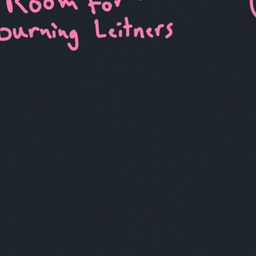 Room for
ourning Leitners